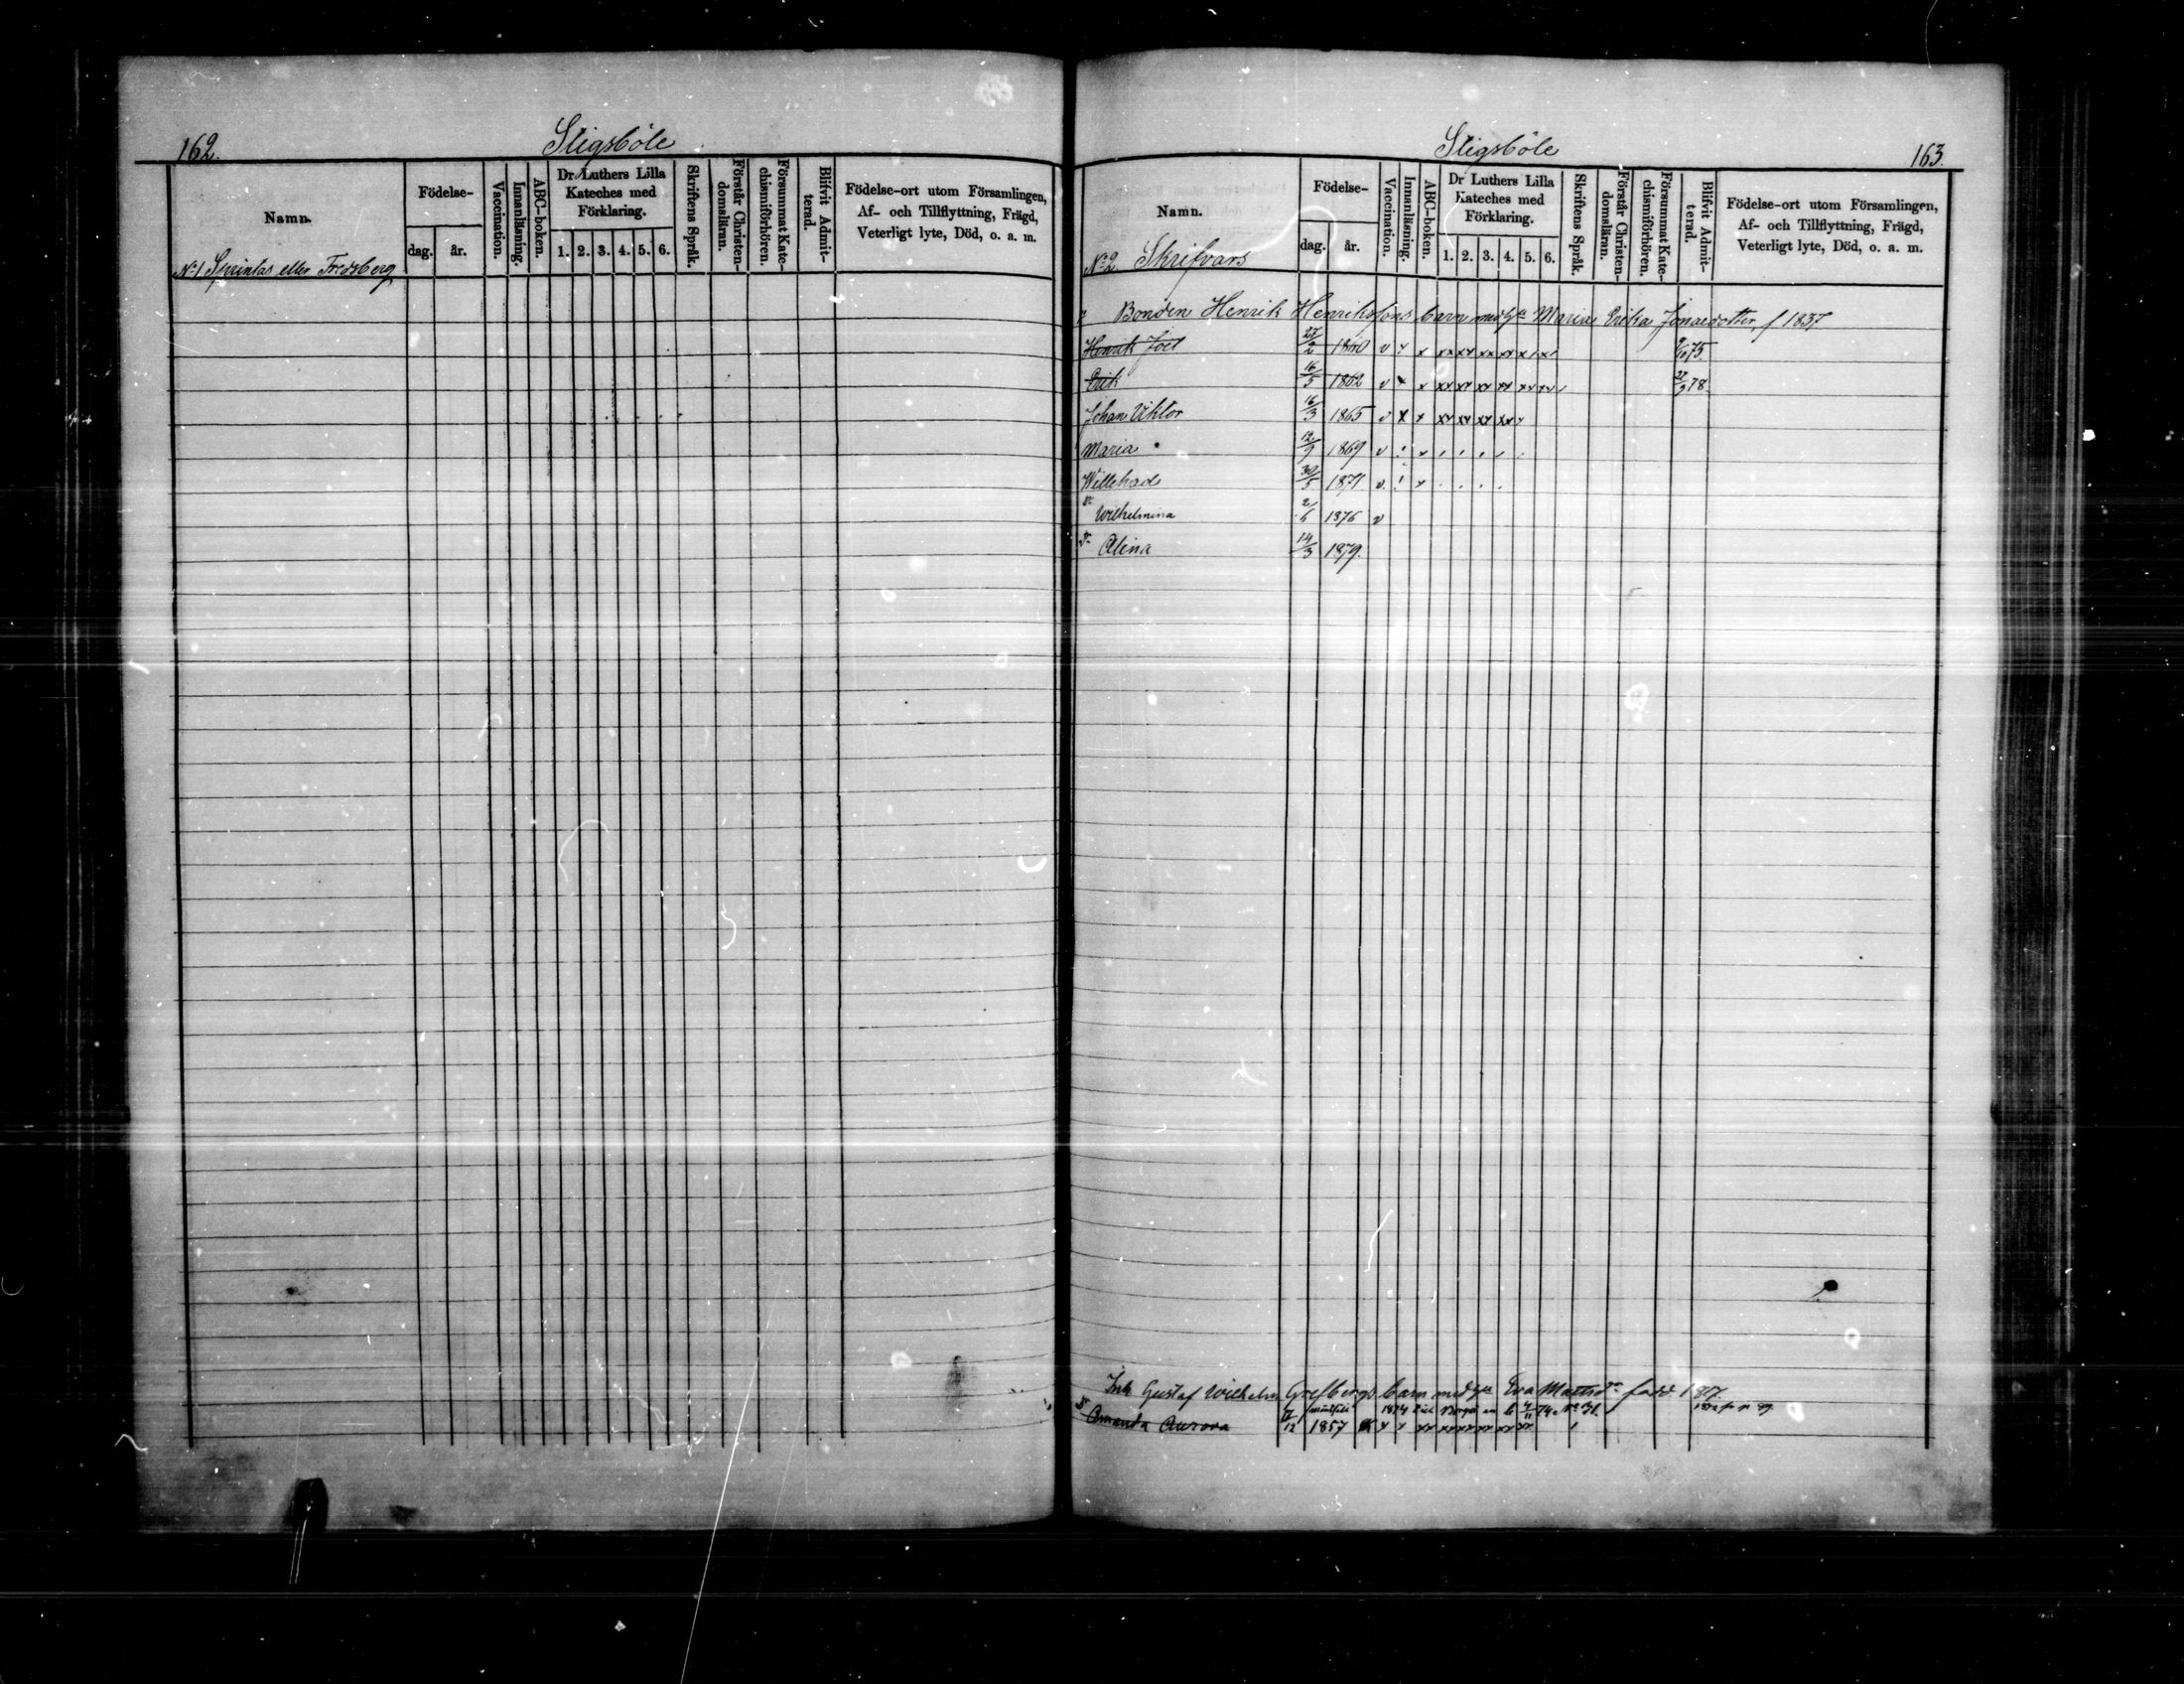 162.
Stigsböle
Namn.
Födelse-
dag.
år.
Vaccination.
Innanläsning.
ABC-boken.
Dr Luthers Lilla
Kateches med
Förklaring.
1. 2. 3. 4. 5. 6.
Skriftens Språk.
Förstår Christen-
domsläran.
Försummat Kate-
chismiförhören.
Blifvit Admit-
terad.
Födelse-ort utom Församlingen,
Af- och Tillflyttning, Frägd,
Veterligt lyte, Död, o. a. m.
No 1 Sprintas eller Fredsberg
Stigsböle
163.
Namn.
Födelse-
dag.
år.
Vaccination.
Innanläsning.
ABC-boken.
Dr Luthers Lilla
Kateches med
Förklaring.
1. 2. 3. 4. 5. 6.
Skriftens Språk.
Förstår Christen-
domsläran.
Försummat Kate-
chismiförhören.
Blifvit Admit-
terad.
Födelse-ort utom Församlingen,
Af- och Tillflyttning, Frägd,
Veterligt lyte, Död, o. a. m.
No 2 Skrifvars
Bonden Henrik Henrikssons barn med h:u Maria Erika Jonaedotter, f 1837
Henrik Joel 1860 v x x xx xx xx xx x x 75.
Erik 16/5 1862 v x x xx xx xx xx xx xx 27/9 78.
Johan Viktor 16/3 1865 v x x xx xx xx xx
Maria 12/9 1869 v
Willehad 30/5 1871 v
Wilhelmina 2/6 1876 v
Alina 14/3 1879.
Inh Gustaf Wilhelm Grefbergs barn med h:u Eva Mattsdr född
Amanda Aurora 12 1857 x x xx xx xx xx xx xx